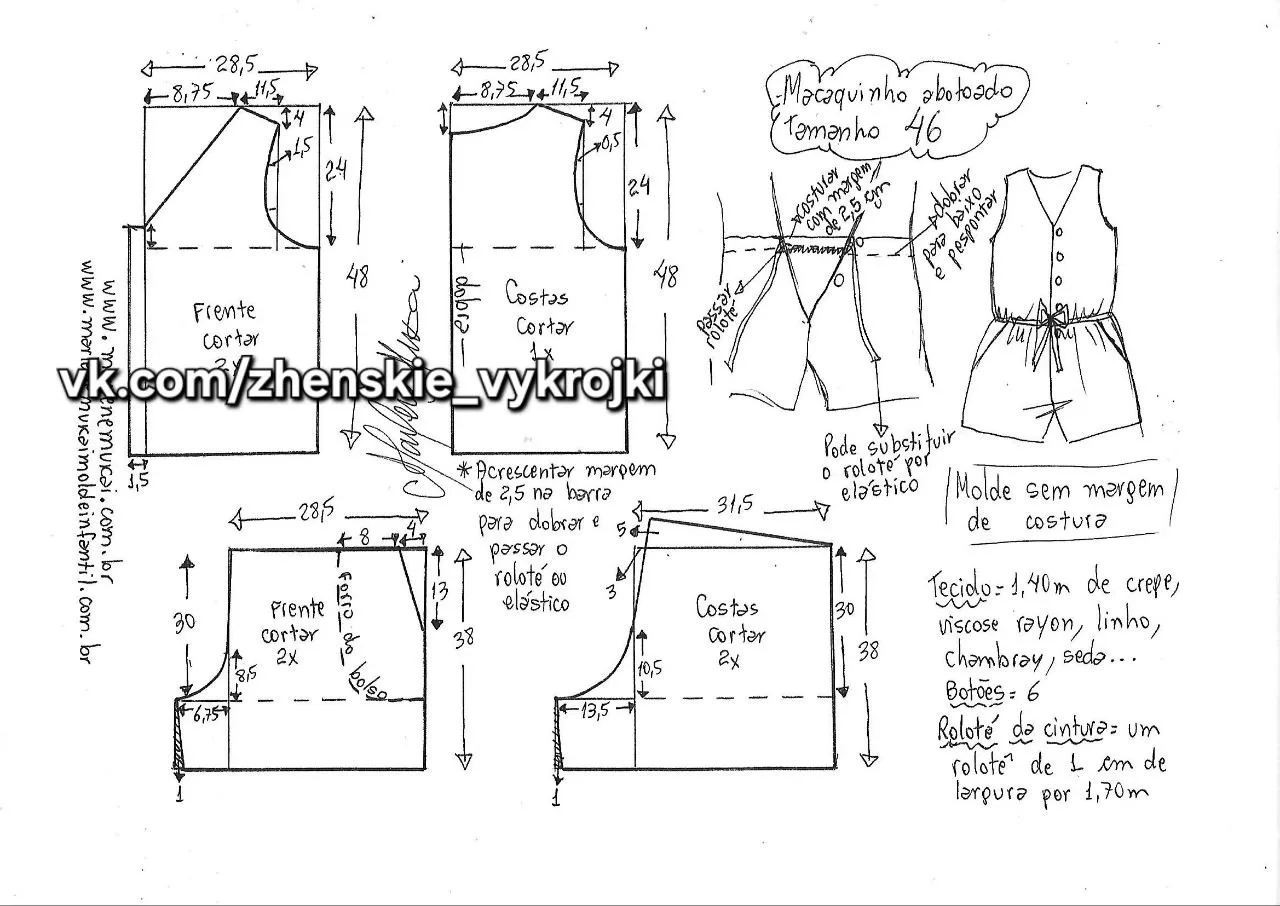 -Macaquinho abotoado
tamanho 46
28,5
8,75
11,5
4
1,5
24
48
Frente
cortar
2x
1,5
28,5
8,75
11,5
4
0,5
24
48
dobra
Costas
cortar
1x
vk.com/zhenskie_vykrojki
costurar
com margem
de 2,5 cm
dobrar
para baixo
e pespontar
passar
roloté
Pode substituir
o roloté por
elástico
* Acrescentar margem
de 2,5 na barra
para dobrar e
passar o
roloté ou
elástico
Molde sem margem
de costura
28,5
8
4
13
30
38
Frente
cortar
2x
Forro do bolso
8,5
6,75
1
31,5
5
3
Costas
cortar
2x
30
38
10,5
13,5
1
Tecido = 1,40m de crepe,
viscose rayon, linho,
chambray, seda...
Botões = 6
Roloté da cintura = um
roloté de 1 cm de
largura por 1,70m